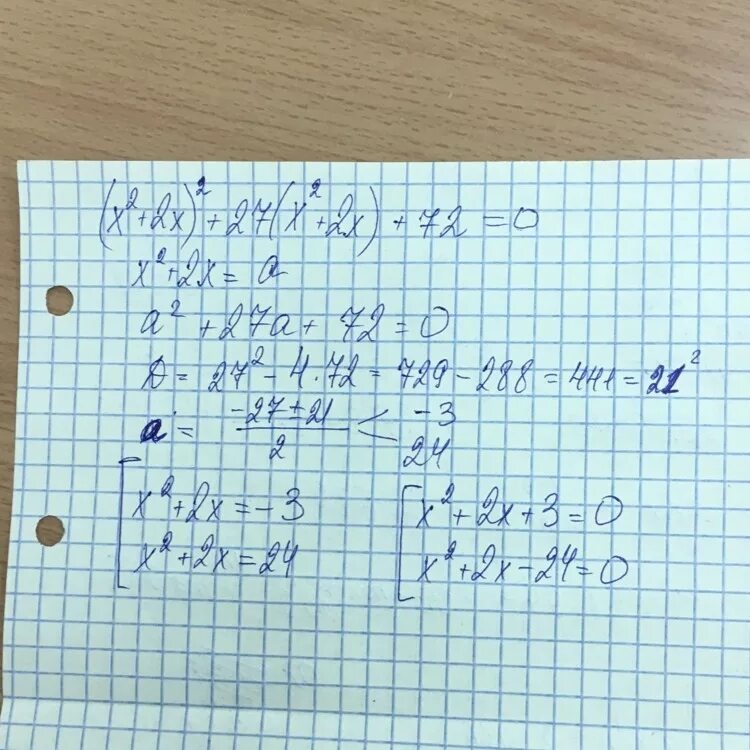 (x²+2x)²+27(x²+2x)+72=0
x²+2x=a
a²+27a+72=0
D=27²-4·72=729-288=441=21²
a=(-27±21)/2 < -3
24
[x²+2x=-3 [x²+2x+3=0
x²+2x=24 x²+2x-24=0